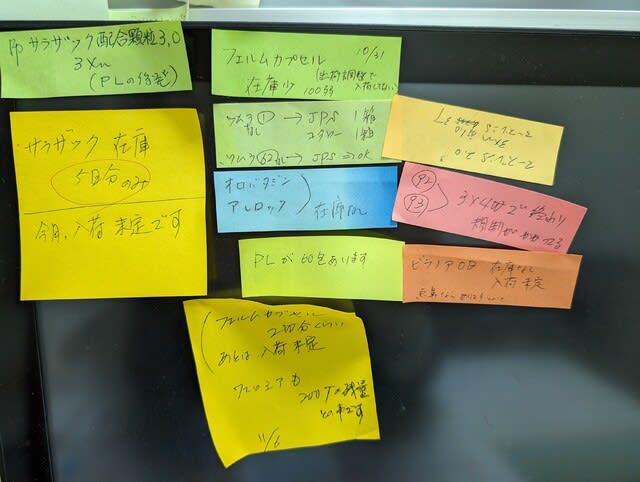 Rp サラザック配合顆粒 3.0
3×n
(PLの後発)
フェルムカプセル 10/31
在庫少 (出荷調整で
100錠 入荷しない)
サラザック 在庫
5日分のみ
今月、入荷 未定です
ツムラ① → JPS 1箱
なし コタロー 1箱
ツムラ62なし → JPS ⇒ OK
オロパタジン
アレロック
在庫なし
92
93
3×4日で終わり
規制がかかってる
PLが60包あります
ビラノアOD 在庫なし
入荷未定
フェルムカプセル
2切分くらい
あとは、入荷未定
200Tの残量
との事です
11/6